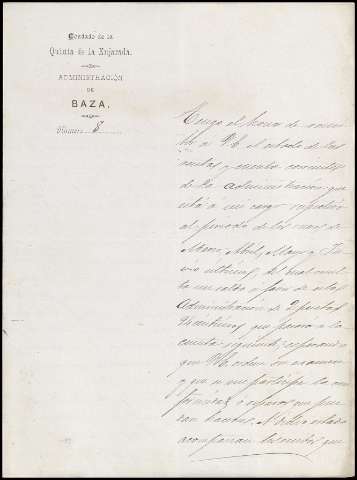 Condado de la
Quinta de la Enjarada.
ADMINISTRACIÓN
DE
BAZA.
Número 8
Tengo el honor de remi-
tir a V.E. el estado de las
rentas y cuenta
de la Administración que
está a mi cargo respectivo
al periodo de los meses de
Marzo, Abril, Mayo y Ju-
nio últimos, del cual resul-
ta un saldo a favor de esta
Administración de 2 pesetas
céntimos que paso a la
cuenta siguiente; esperando
que V.E. ordene su examen
y que se me participe la con-
formidad o reparos que pue-
dan hacerse. A dicho estado
acompañan documentos que